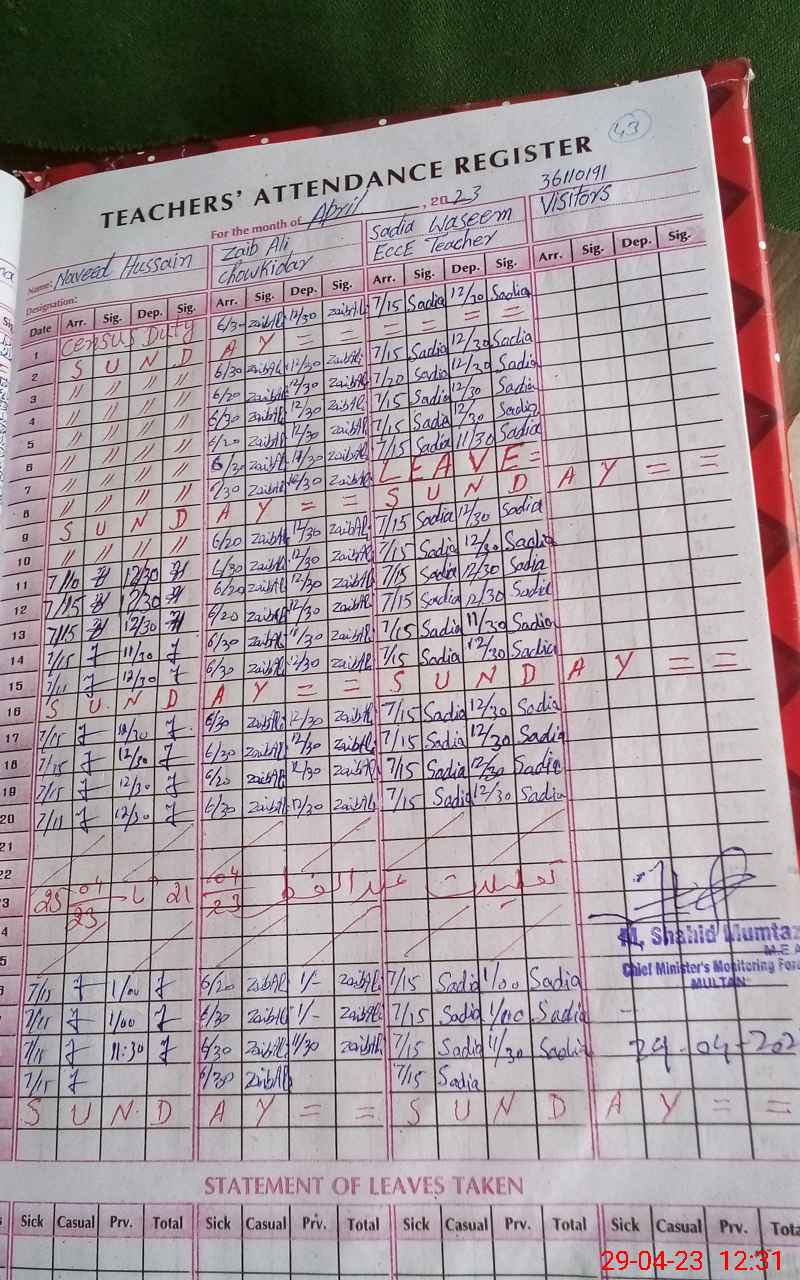 43
TEACHERS' ATTENDANCE REGISTER
For the month of April, 2023 36110191
Name: Naveed Hussain Zaib Ali Sadia Waseem Visitors
Designation: Chowkidar EccE Teacher
Date Arr. Sig. Dep. Sig. Arr. Sig. Dep. Sig. Arr. Sig. Dep. Sig. Arr. Sig. Dep. Sig.
1 Census Duty 6/30 ZaibAli 12/30 ZaibAli 7/15 Sadia 12/30 Sadia
2 S U N D A Y = = = = = =
3 " " " " 6/30 ZaibAli 12/30 ZaibAli 7/15 Sadia 12/30 Sadia
4 " " " " 6/20 ZaibAli 12/30 ZaibAli 7/20 Sadia 12/30 Sadia
5 " " " " 6/30 ZaibAli 12/30 ZaibAli 7/15 Sadia 12/30 Sadia
6 " " " " 6/20 ZaibAli 12/30 ZaibAli 7/15 Sadia 12/30 Sadia
7 " " " " 6/30 ZaibAli 11/30 ZaibAli 7/15 Sadia 11/30 Sadia
8 " " " " 6/30 ZaibAli ZaibAli L E A V E =
9 S U N D A Y = = S U N D A Y = =
10 " " " " 6/20 ZaibAli 12/30 ZaibAli 7/15 Sadia 12/30 Sadia
11 7/10 12/30 6/30 ZaibAli 12/30 ZaibAli 7/15 Sadia 12/30 Sadia
12 7/15 12/30 6/20 ZaibAli 12/30 ZaibAli 7/15 Sadia 12/30 Sadia
13 7/15 12/30 6/20 ZaibAli 12/30 ZaibAli 7/15 Sadia 12/30 Sadia
14 7/15 11/30 6/30 ZaibAli 11/30 ZaibAli 7/15 Sadia 11/30 Sadia
15 12/30 6/30 ZaibAli 12/30 ZaibAli 7/15 Sadia 12/30 Sadia
16 S U N D A Y = = S U N D A Y = =
17 7/15 12/30 6/30 ZaibAli 12/30 ZaibAli 7/15 Sadia 12/30 Sadia
18 7/15 12/30 6/30 ZaibAli 12/30 ZaibAli 7/15 Sadia 12/30 Sadia
19 7/15 12/30 6/20 ZaibAli 12/30 ZaibAli 7/15 Sadia 12/30 Sadia
20 7/15 12/30 6/30 ZaibAli 12/30 ZaibAli 7/15 Sadia 12/30 Sadia
21
22
3 تعطیلات عید الفطر 21 04/23 تا 25 04/23
4
5
7/15 1/00 6/20 ZaibAli 1/- ZaibAli 7/15 Sadia 1/00 Sadia
7/15 1/00 6/30 ZaibAli 1/- ZaibAli 7/15 Sadia 1/00 Sadia
7/15 11:30 6/30 ZaibAli 11/30 ZaibAli 7/15 Sadia 11/30 Sadia
7/15 6/30 ZaibAli 7/15 Sadia
S U N D A Y = = S U N D A Y = =
M. Shahid Mumtaz
M.E.A
Chief Minister's Monitoring For
MULTAN
29-04-202
STATEMENT OF LEAVES TAKEN
Sick Casual Prv. Total Sick Casual Prv. Total Sick Casual Prv. Total Sick Casual Prv. Tota
29-04-23 12:31